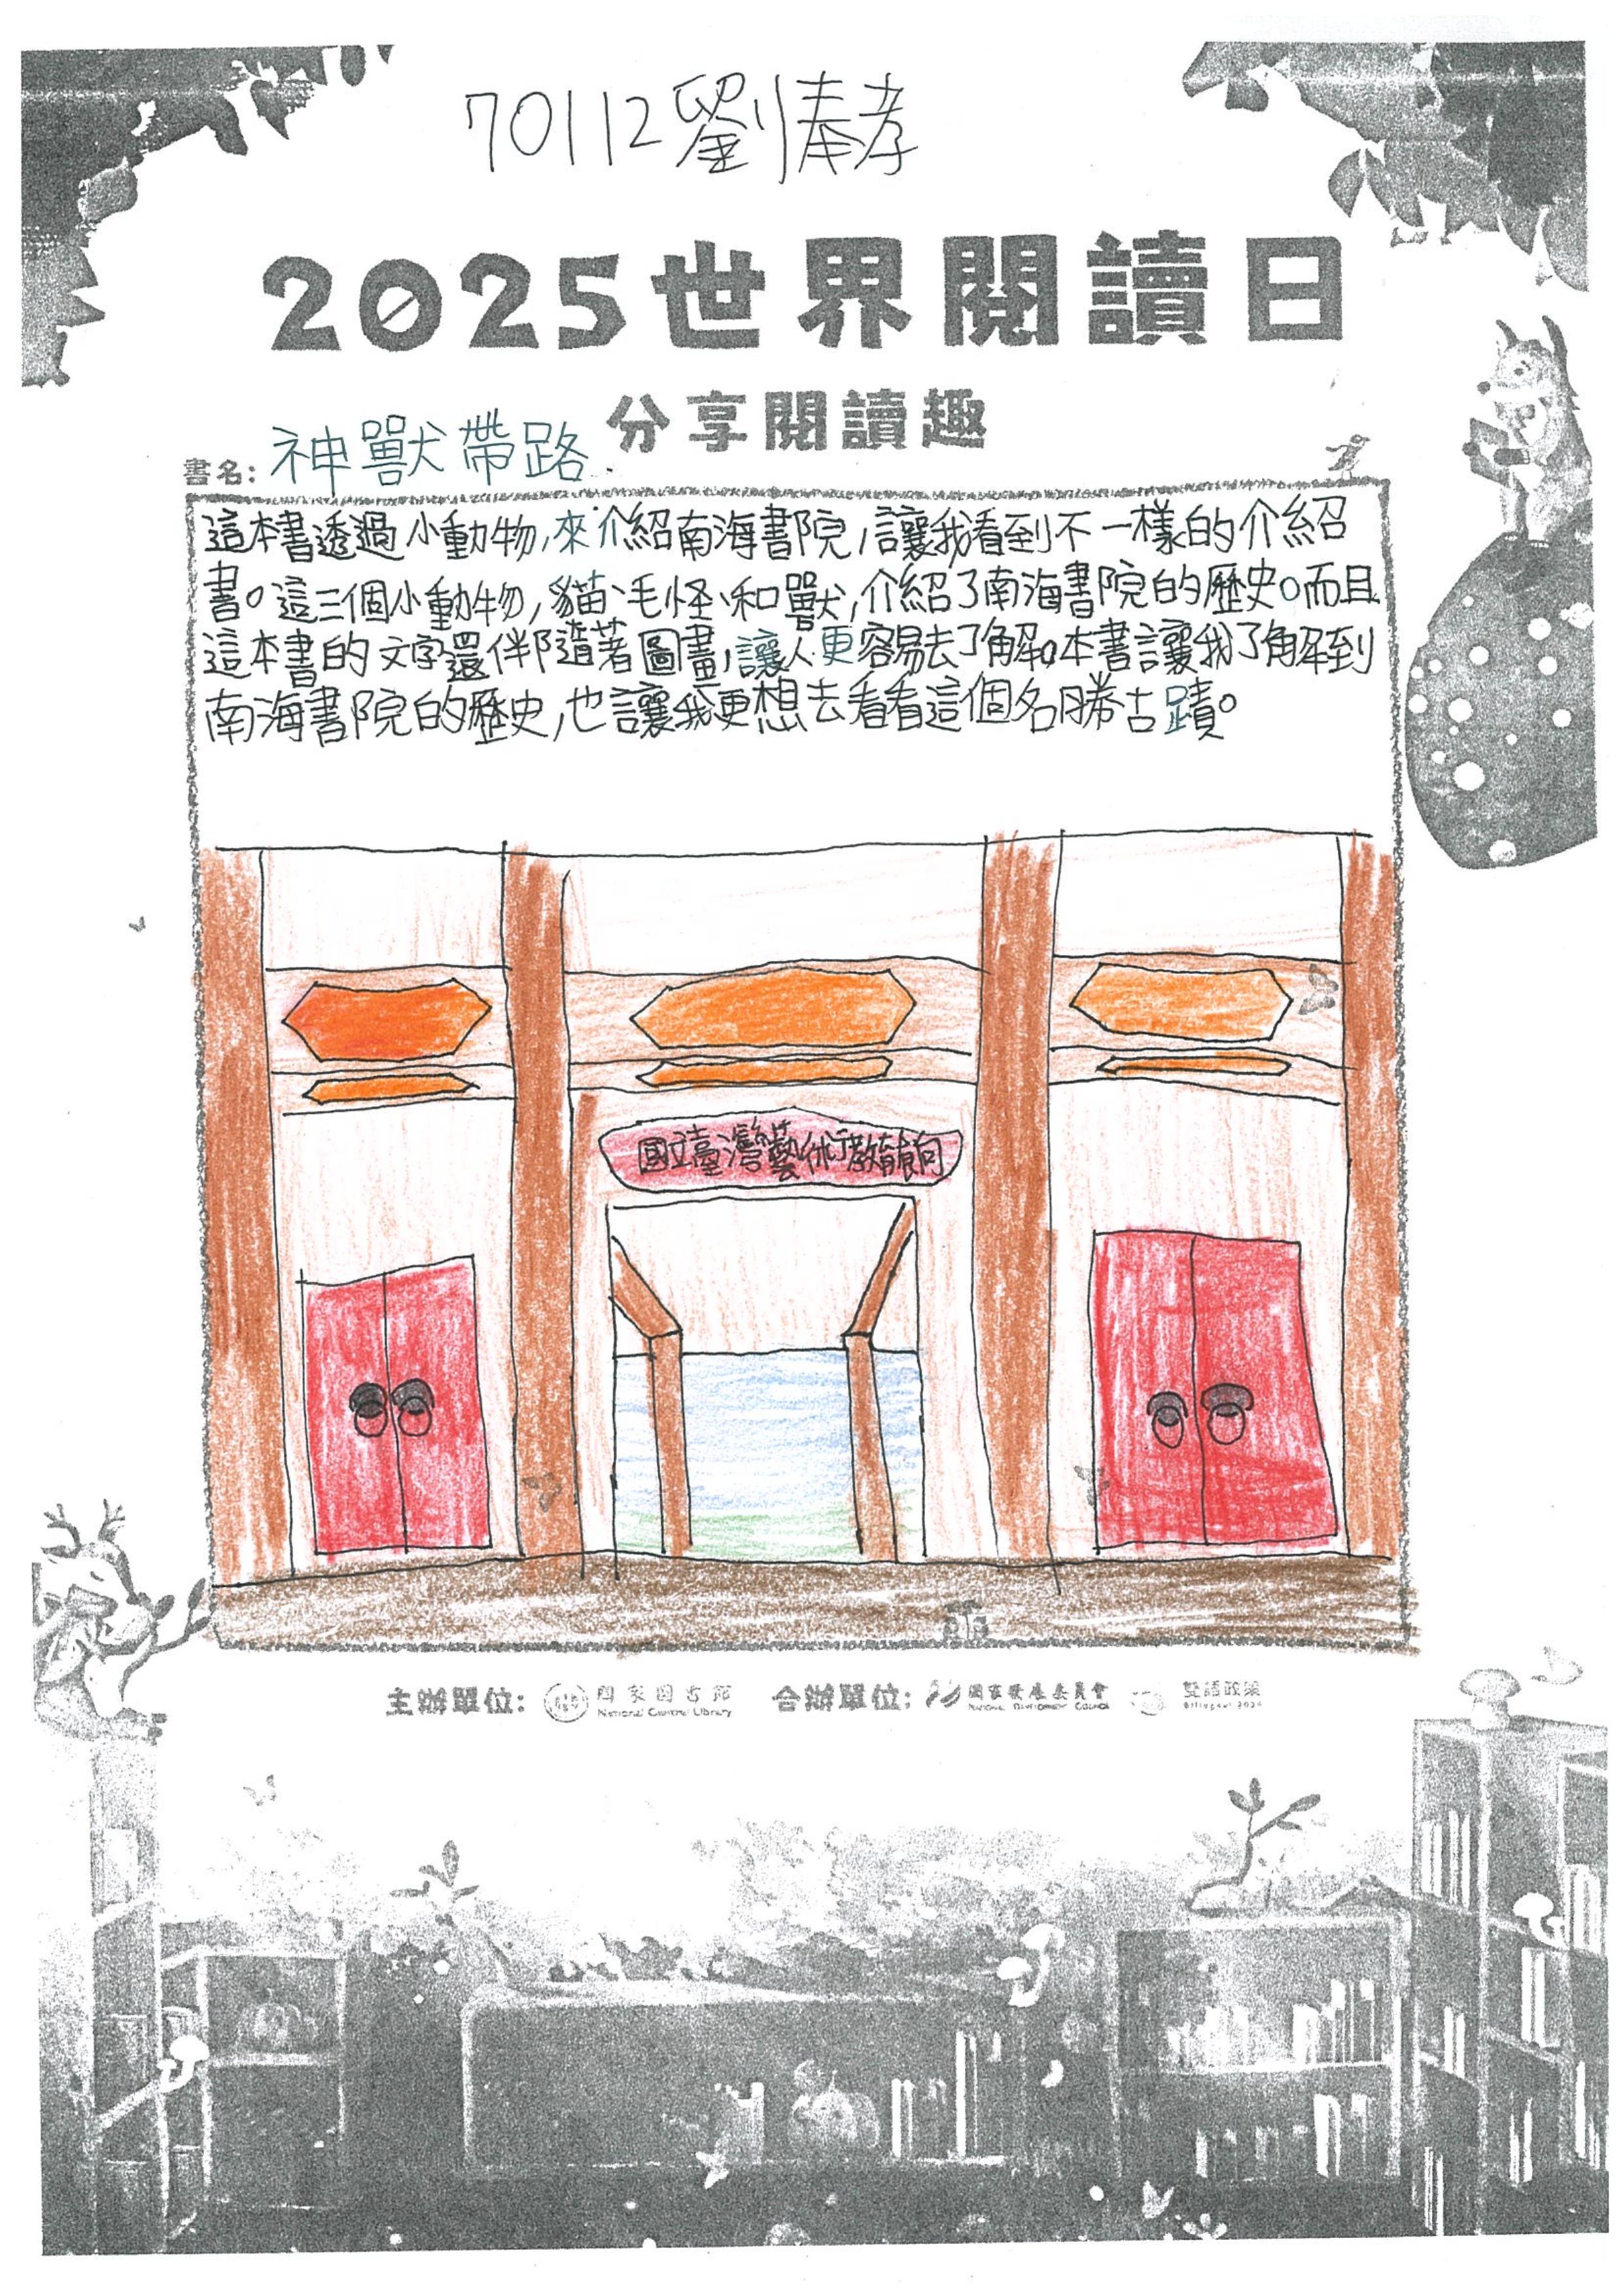 70112劉俸孝
2025世界閱讀日
分享閱讀趣
書名：神獸帶路
這本書透過小動物，來介紹南海書院，讓我看到不一樣的介紹
書。這三個小動物，貓、毛怪、和獸，介紹了南海書院的歷史。而且
這本書的文字還伴隨著圖畫，讓人更容易去了解。本書讓我了解到
南海書院的歷史，也讓我更想去看看這個名勝古蹟。
國立臺灣藝術教育館
主辦單位：國家圖書館 National Central Library 合辦單位：國家發展委員會 National Development Council 雙語政策 Bilingual 2030